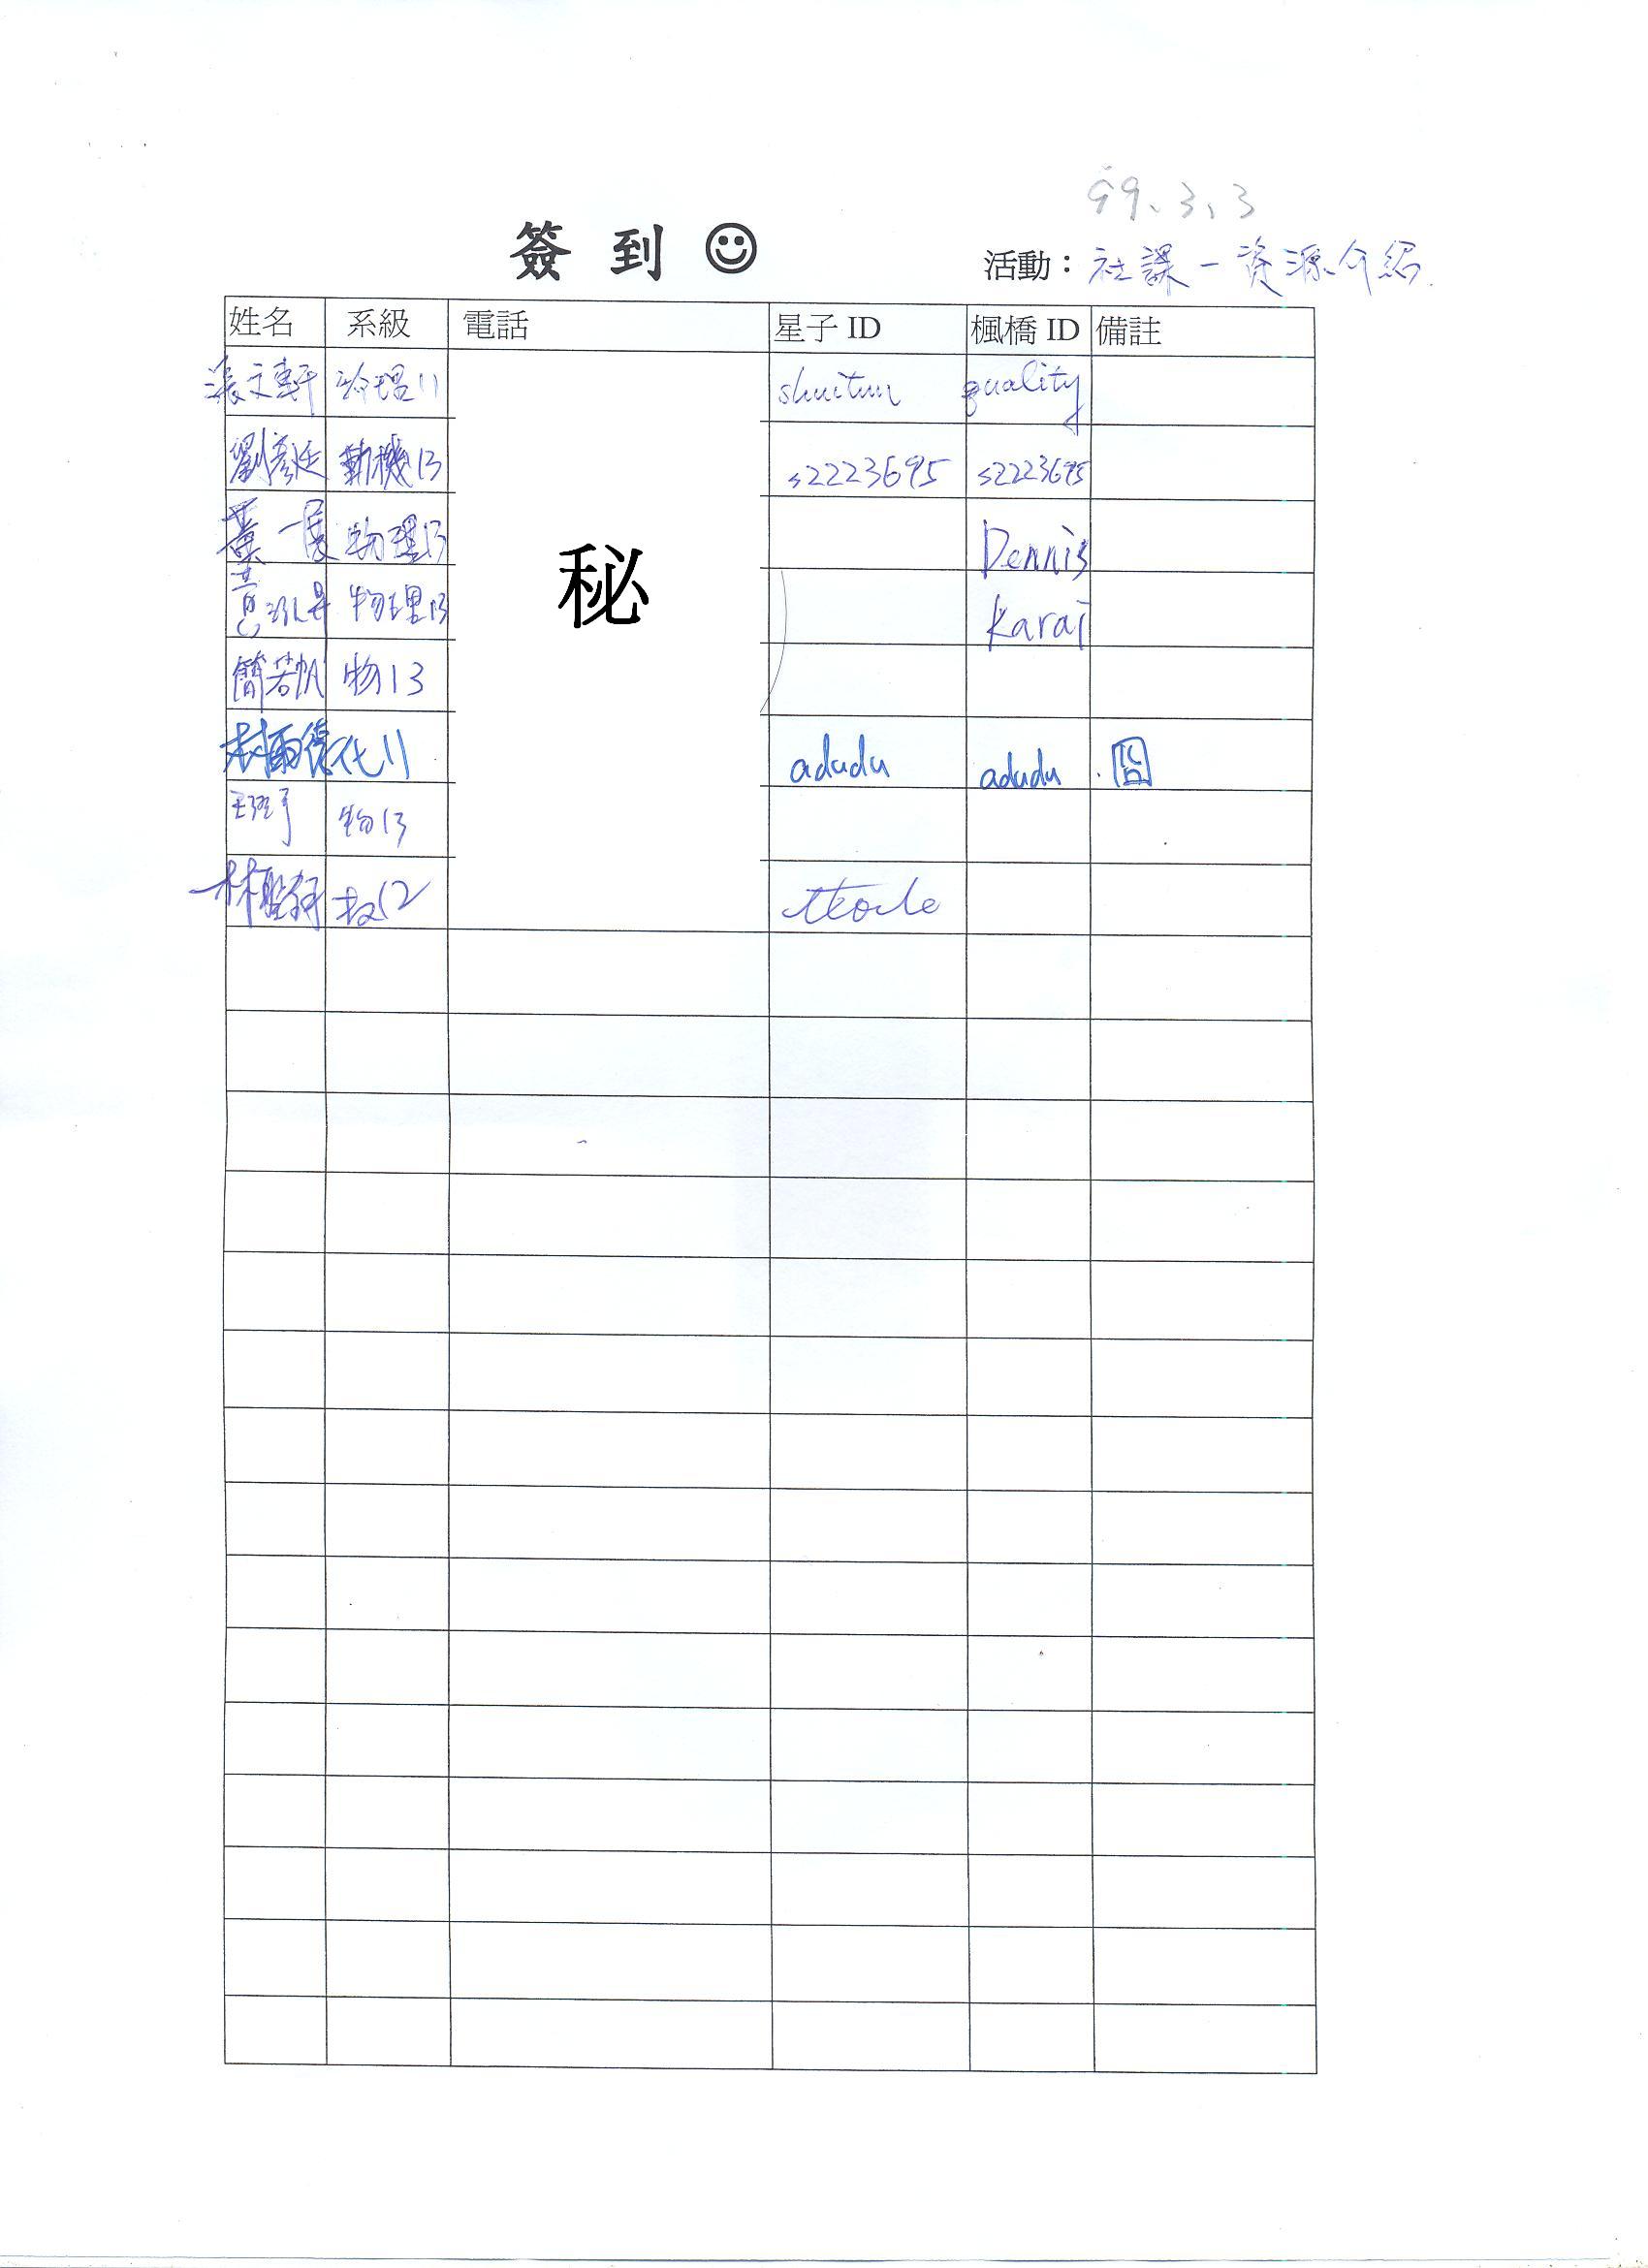 99.3.3
簽 到 ☺
活動：社課－資源介紹
姓名 系級 電話 星子 ID 楓橋 ID 備註
張文軒 物理11 shuitun quality
劉彥廷 動機13 s2223695 s2223695
物理13 Dennis
黃 物理13 Karai
簡若帆 物13
林雨德 化11 adudu adudu 囧
物13
林聖 材12
秘